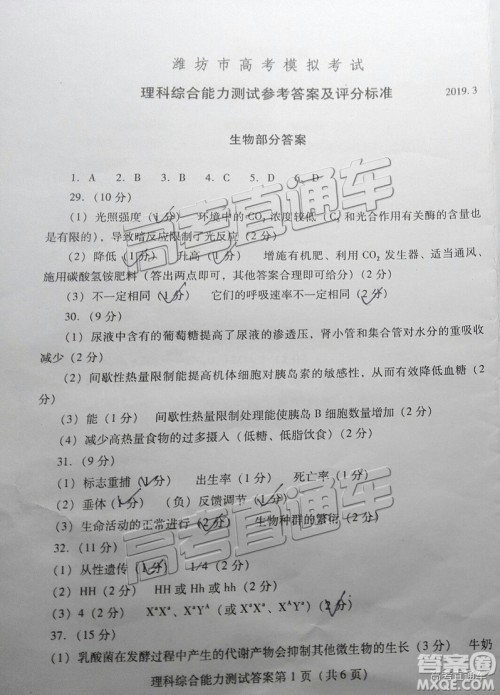 潍坊市高考模拟考试
理科综合能力测试参考答案及评分标准
2019.3
生物部分答案
1. A 2. B 3. B 4. C 5. D 6. D
29. (10 分)
(1) 光照强度（1 分） 环境中的 CO₂ 浓度较低（和光合作用有关酶的含量也
是有限的），导致暗反应限制了光反应（2 分）
(2) 降低（1 分） 升高（1 分） 增施有机肥、利用 CO₂ 发生器、适当通风、
施用碳酸氢铵肥料（答出两点即可，其他答案合理即可）（2 分）
(3) 不一定相同（1 分） 它们的呼吸速率不一定相同（2 分）
30. (9 分)
(1) 尿液中含有的葡萄糖提高了尿液的渗透压，肾小管和集合管对水分的重吸收
减少（2 分）
(2) 间歇性热量限制能提高机体细胞对胰岛素的敏感性，从而有效降低血糖（2
分）
(3) 能（1 分） 间歇性热量限制处理能使胰岛 B 细胞数量增加（2 分）
(4) 减少高热量食物的过多摄入（低糖、低脂饮食）（2 分）
31. (9 分)
(1) 标志重捕（1 分） 出生率（1 分） 死亡率（1 分）
(2) 垂体（1 分） （负）反馈调节（1 分）
(3) 生命活动的正常进行（2 分） 生物种群的繁衍（2 分）
32. (11 分)
(1) 从性遗传（1 分） 1/4（2 分）
(2) HH（2 分） HH 或 Hh 或 hh（2 分）
(3) 4（2 分） XᵃXᵃ、XᵃYᴬ（或 XᵃXᵃ、XᵃYᴬ）（2 分）
37. (15 分)
(1) 乳酸菌在发酵过程中产生的代谢产物会抑制其他微生物的生长（3 分） 牛奶
理科综合能力测试答案第 1 页（共 6 页）
高考直通车
高考直通车
高考直通车
答案圈